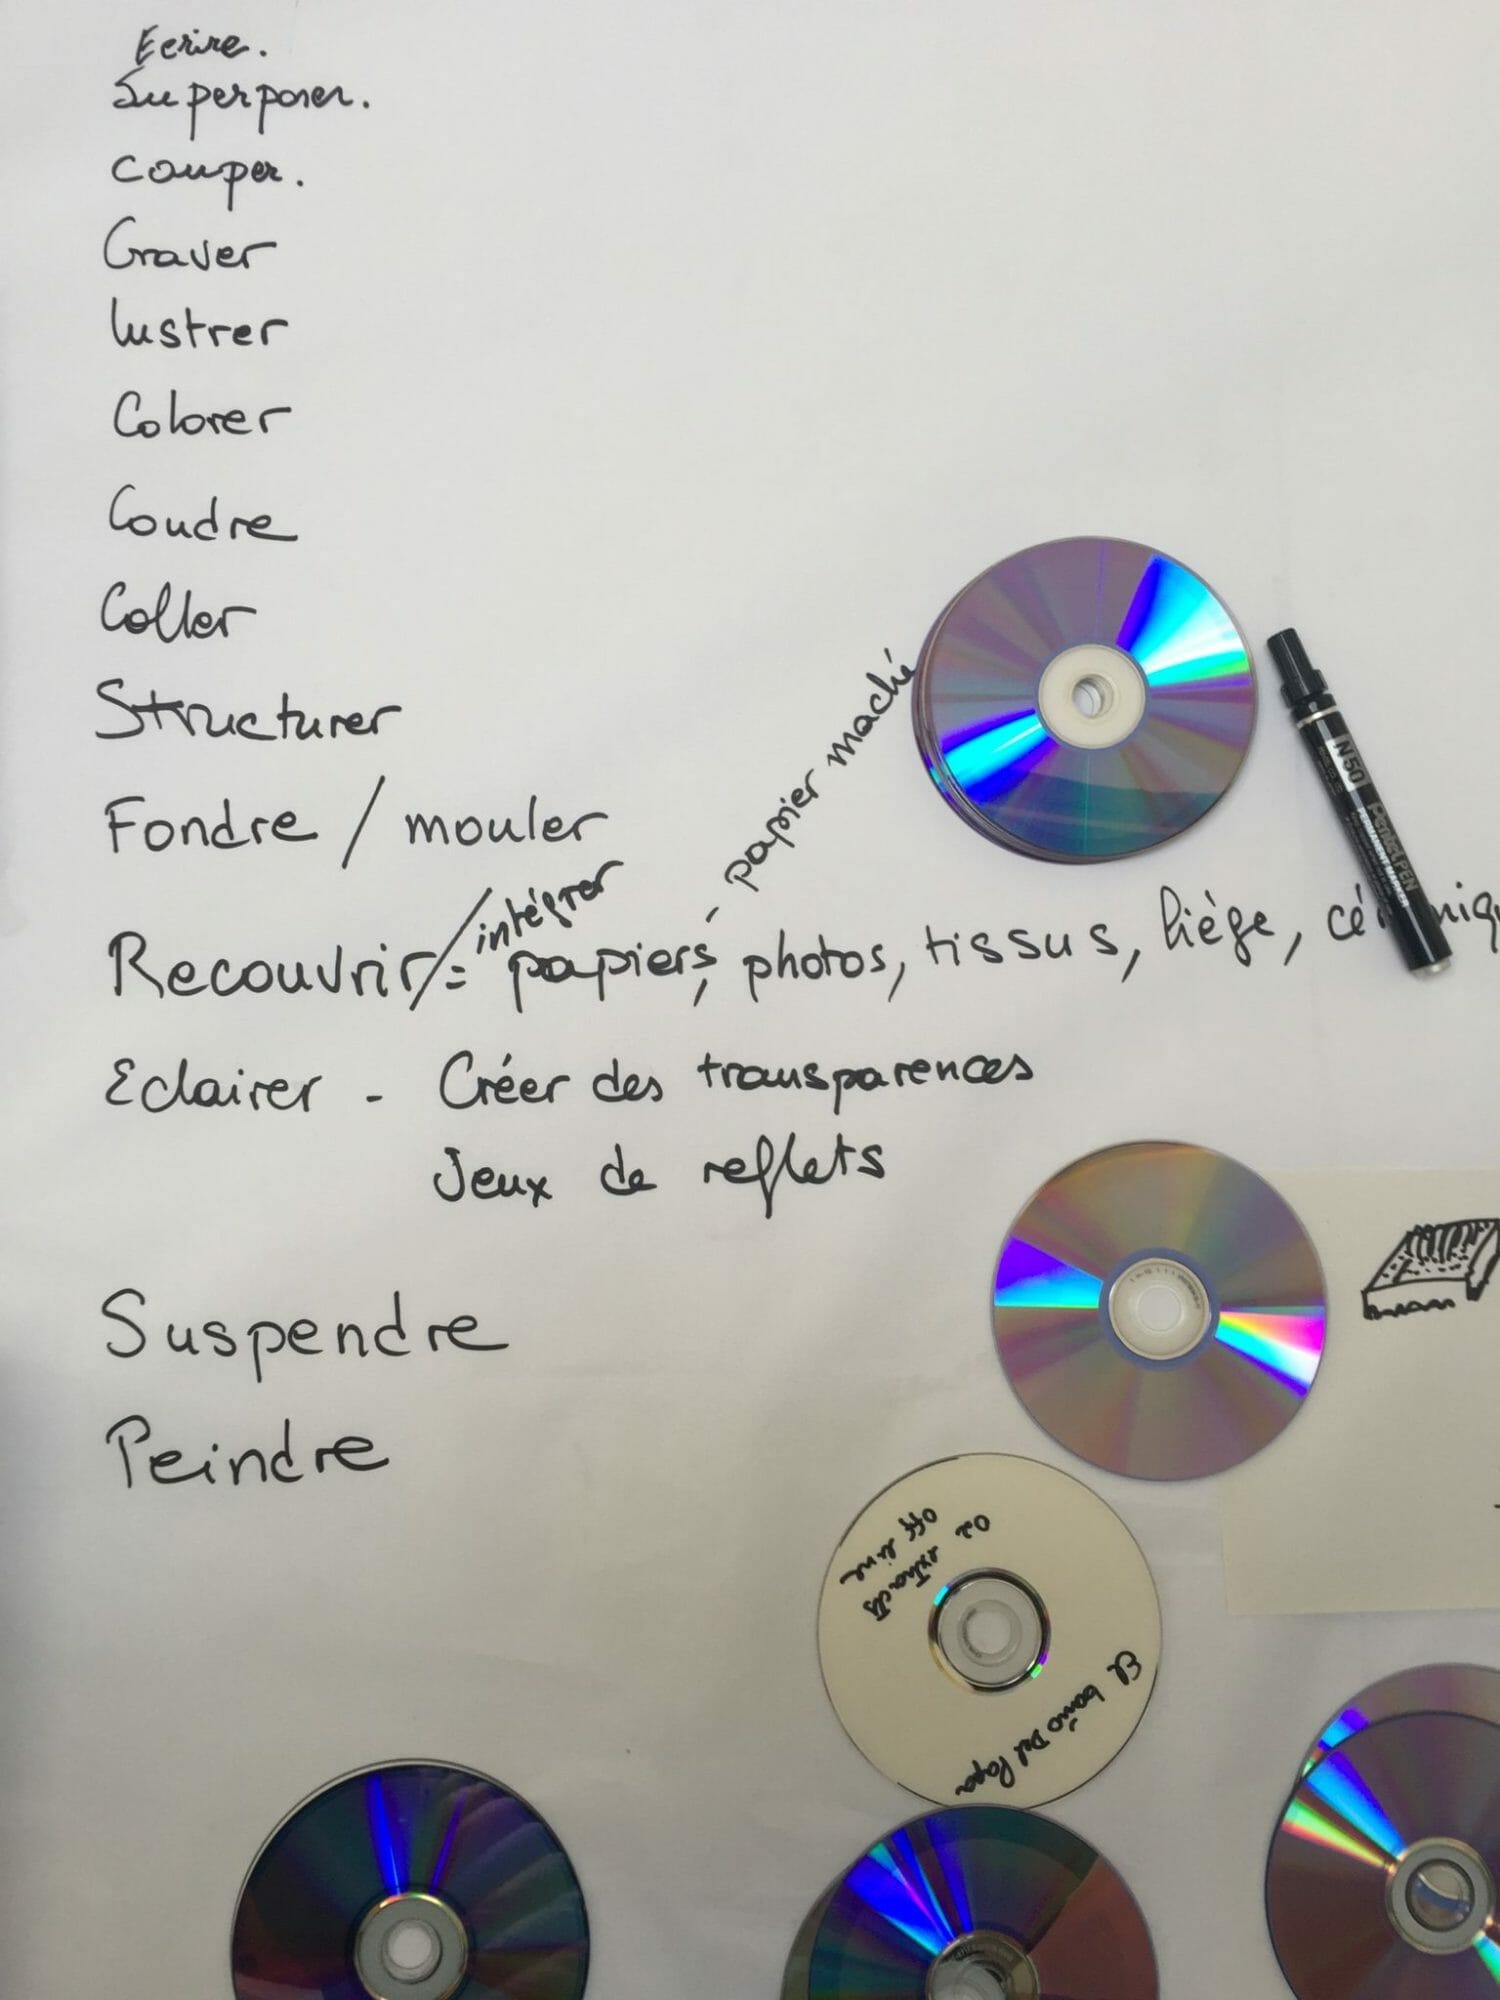 Ecrire.
Superposer.
couper.
Graver
lustrer
Colorer
Coudre
Coller
Structurer
Fondre / mouler
Recouvrir / intégrer = papiers, - papier maché photos, tissus, liège,
Eclairer - Créer des transparences
Jeux de reflets
Suspendre
Peindre
N50
Pentel PEN
PERMANENT MARKER
off line
extracts
El baño Del Papa